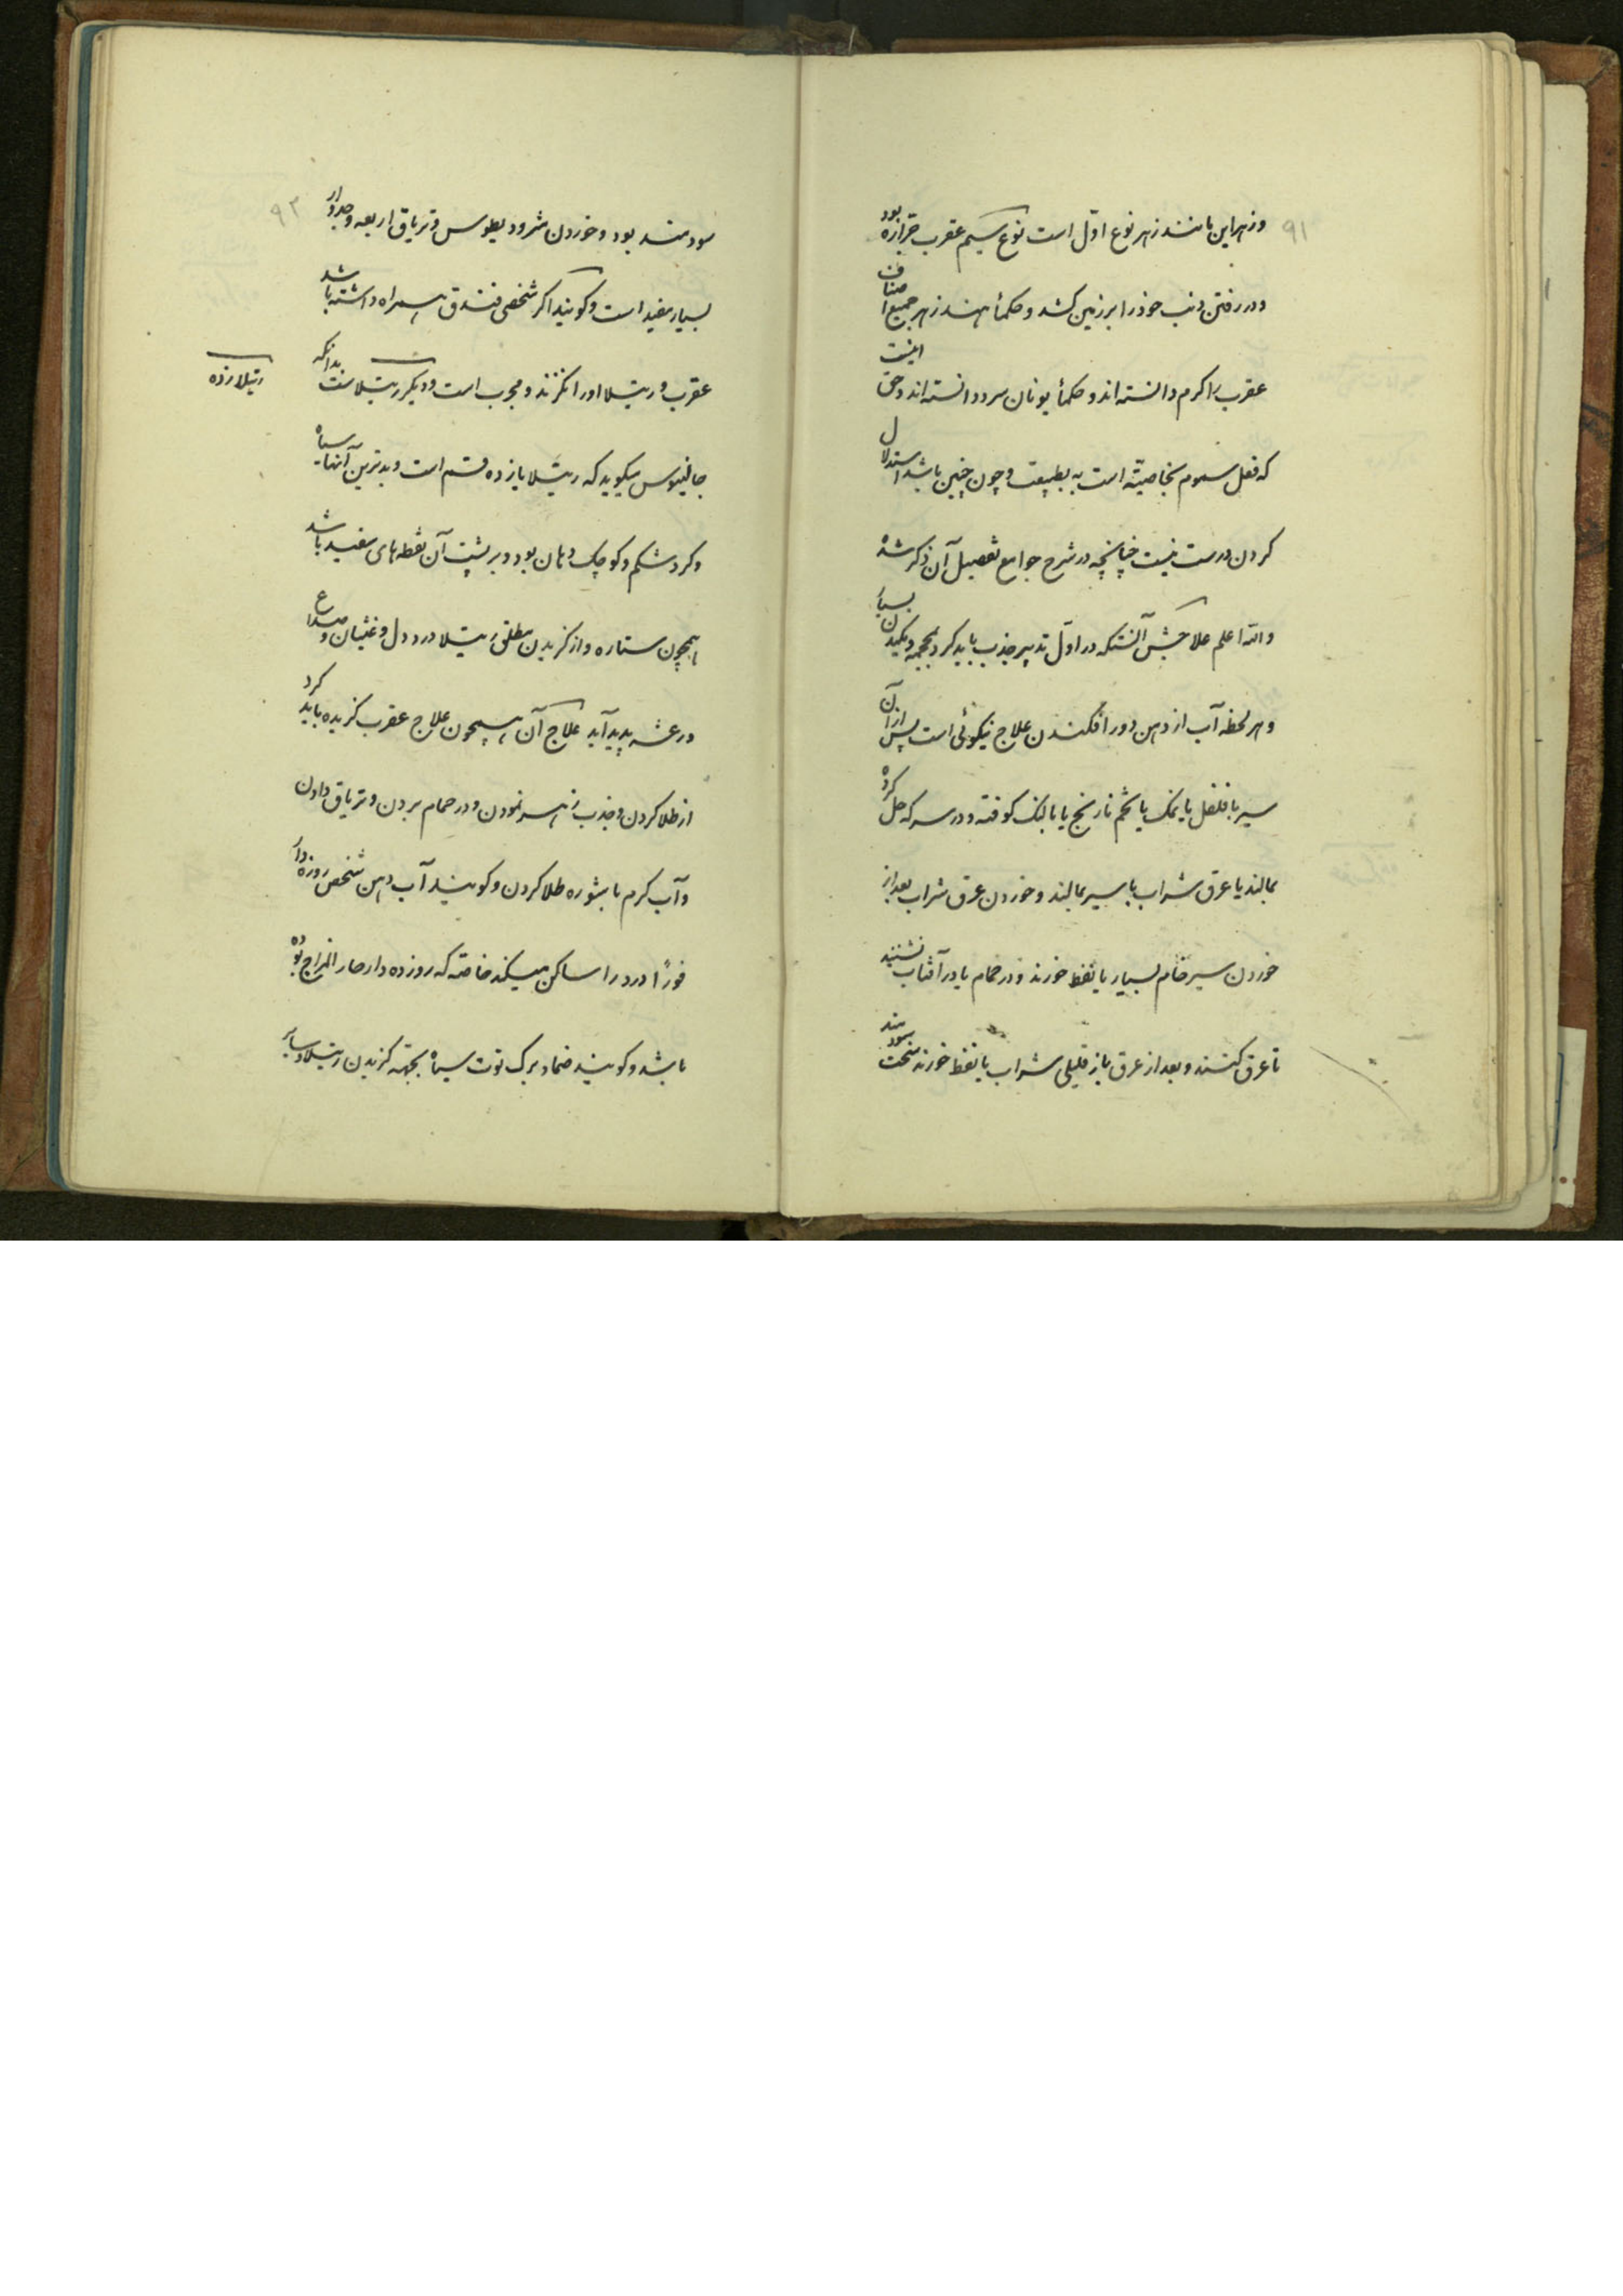 ۹۱
وزهر این مانند زهر نوع اوّل است نوع سیم عقرب جرّاره بود
ودر رفتن ذنب خود را بر زمین کشد وحکمأ هند زهر جمیع اصناف
عقرب را کرم دانسته اند وحکمأ یونان سرد دانسته اند وحق اینست
که فعل سموم بخاصیّته است نه بطبیعت وچون چنین باشد استدلال
کردن درست نیست چنانچه در شرح جوامع تفصیل آن ذکر شده
والله اعلم علاجش آنستکه در اوّل تدبیر جذب باید کرد بمحجمه ومکیدن بسیار
وهر لحظه آب از دهن دور افکندن علاج نیکوئی است پس از آن
سیر با فلفل یا نمک یا تخم نارنج یا بالنک کوفته ودر سرکه حل کرده
بمالند یا عرق شراب با سیر بمالند وخوردن عرق شراب بعد از
خوردن سیر خام بسیار یا نفط خورند ودر حمام یا در آفتاب نشینند
تا عرق کنند وبعد از عرق باز قلیلی شراب یا نفط خورند سخت سودمند
۹۲
سودمند بود وخوردن مثرودیطوس وتریاق اربعه وجدوار
بسیار مفید است وکویند اکر شخصی فندق همراه داشته باشد
عقرب ورتیلا او را نکزند ومجرب است ودیکر رتیلاست بدانکه
رتیلا زده
جالینوس میکوید که رتیلا یازده قسم است وبدترین آنها سیاه
وکرد شکم وکوچک دهان بود وبر پشت آن نقطه های سفید باشد
همچون ستاره واز کزیدن مطلق رتیلا درد دل وغثیان وصداع
ورعشه پدید آید علاج آن همچون علاج عقرب کزیده باید کرد
از طلا کردن وجذب زهر نمودن ودر حمام بردن وتریاق دادن
وآب کرم با شوره طلا کردن وکویند آب دهن شخص روزه دار
فورًا درد را ساکن میکند خاصّه که روزه دار حار المزاج بوده
باشد وکویند ضماد برک توت سیاه بجهته کزیدن رتیلا وسایر